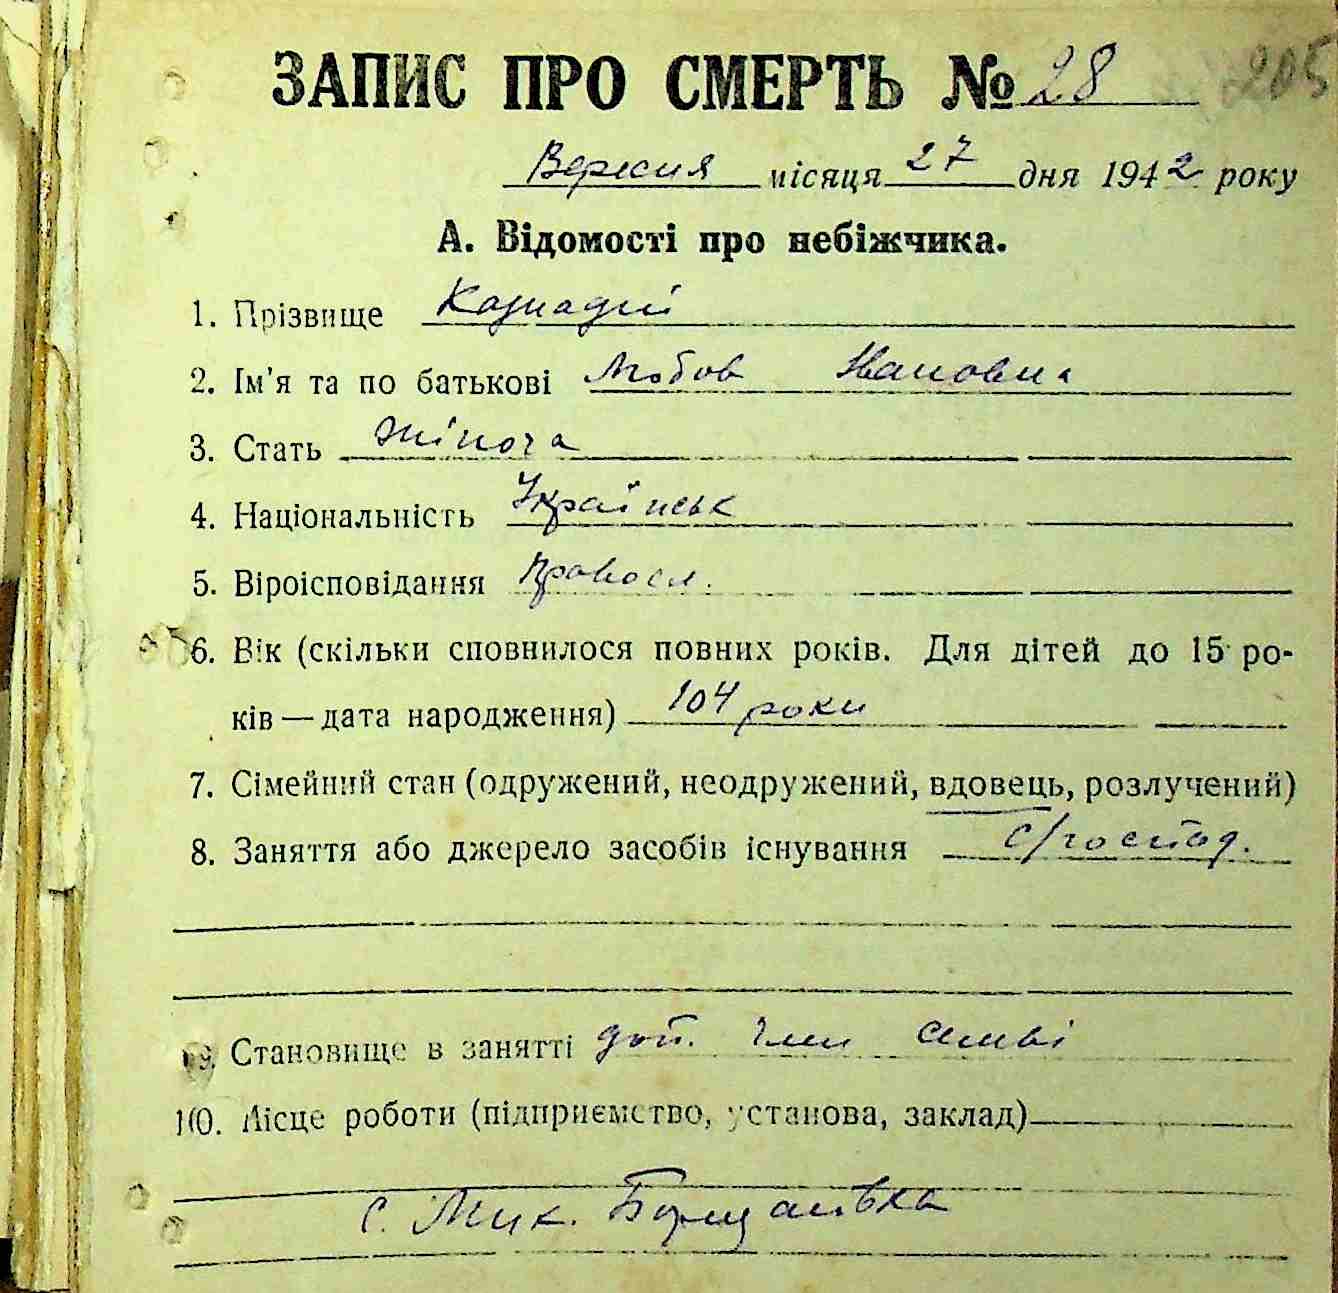 ЗАПИС ПРО СМЕРТЬ № 28 205
Вересня місяця 27 дня 1942 року
А. Відомості про небіжчика.
1. Прізвище
2. Ім'я та по батькові Любов Ивановна
3. Стать жіноча
4. Національність Українськ
5. Віроісповідання Правосл.
6. Вік (скільки сповнилося повних років. Для дітей до 15 ро-
ків — дата народження) 104 роки
7. Сімейний стан (одружений, неодружений, вдовець, розлучений)
8. Заняття або джерело засобів існування с/господ.
9. Становище в занятті доп. член семьі
10. Місце роботи (підприємство, установа, заклад)
с. Мик. Борщагівка